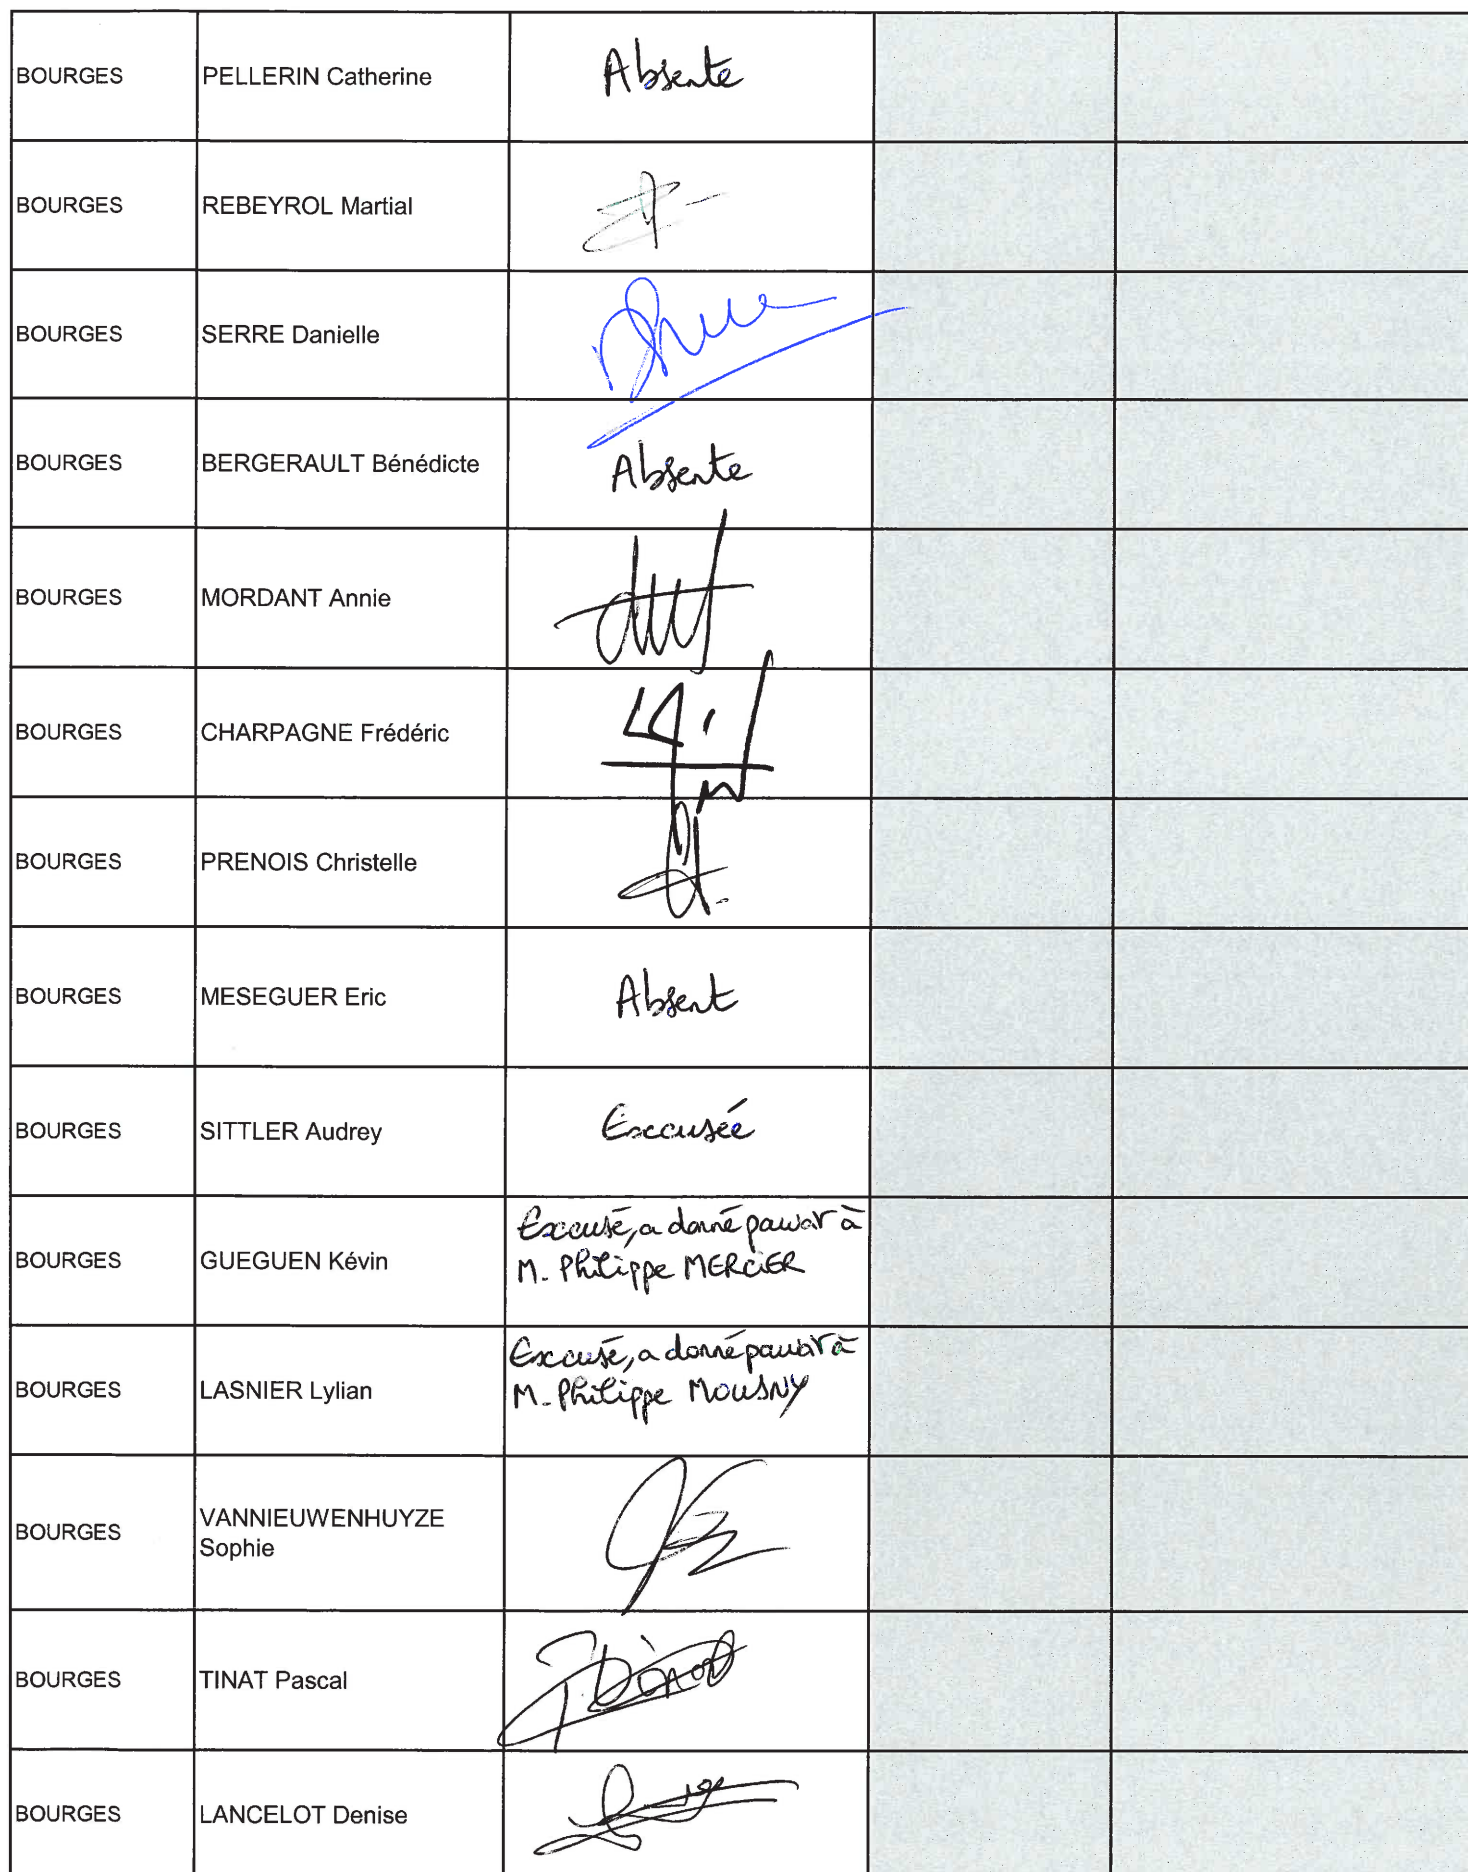 BOURGES PELLERIN Catherine Absente
BOURGES REBEYROL Martial
BOURGES SERRE Danielle
BOURGES BERGERAULT Bénédicte Absente
BOURGES MORDANT Annie
BOURGES CHARPAGNE Frédéric
BOURGES PRENOIS Christelle
BOURGES MESEGUER Eric Absent
BOURGES SITTLER Audrey Excusée
BOURGES GUEGUEN Kévin
Excusé, a donné pouvoir à
M. Philippe MERCIER
BOURGES LASNIER Lylian
Excusé, a donné pouvoir à
M. Philippe MOUSNY
BOURGES VANNIEUWENHUYZE
Sophie
BOURGES TINAT Pascal
BOURGES LANCELOT Denise